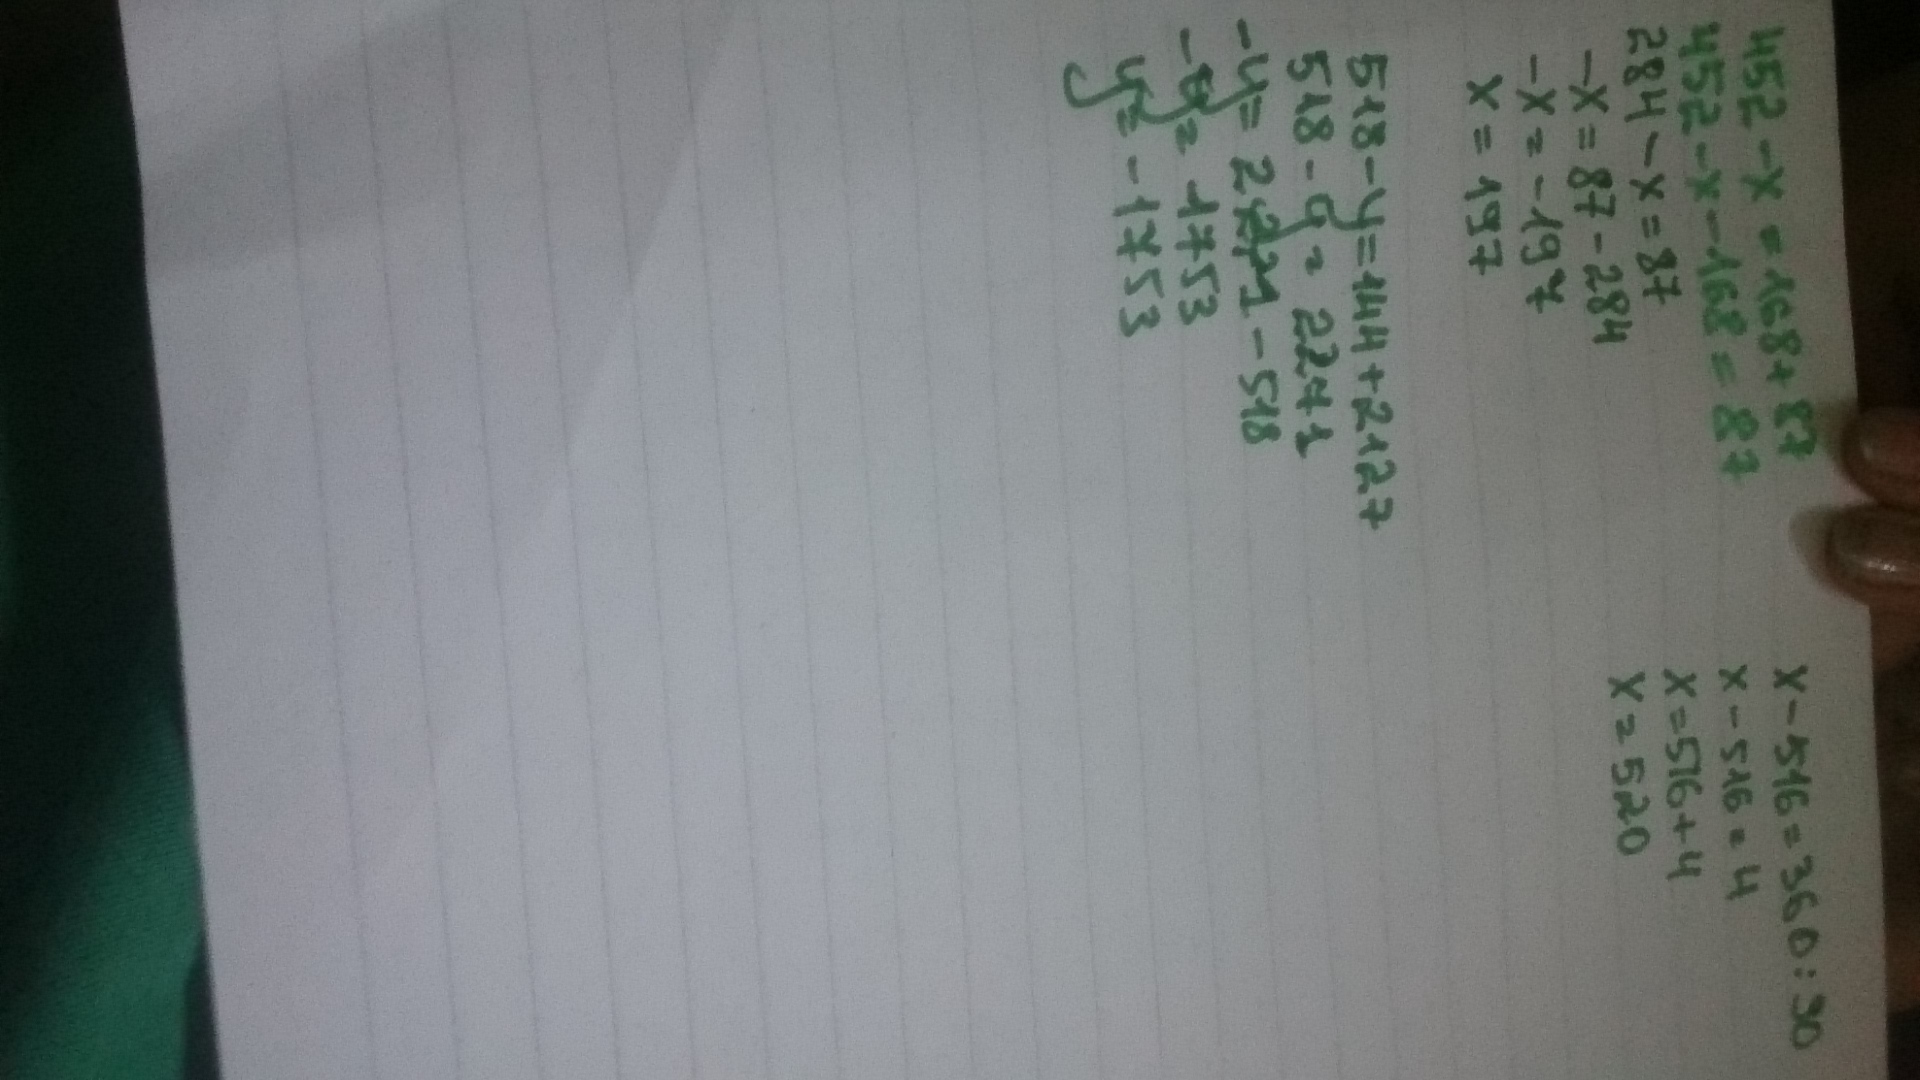 452-x=168+87
452-x-168=87
284-x=87
-x=87-284
-x=-197
x=197
518-y=144+2127
518-y=2271
-y=2271-518
-y=1753
y=-1753
x-516=360:90
x-516=4
x=516+4
x=520